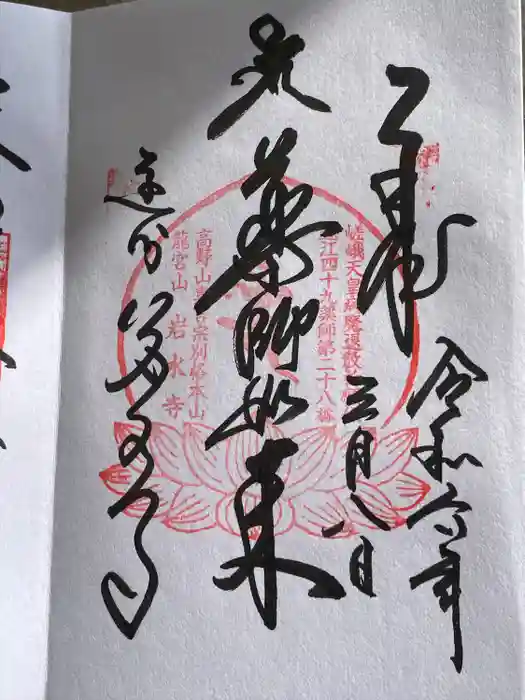 奉拝
令和六年
三月八日
嵯峨天皇
遠江四十九薬師第二十八番
薬師如来
高野山真言宗別格本山
龍宮山 岩水寺